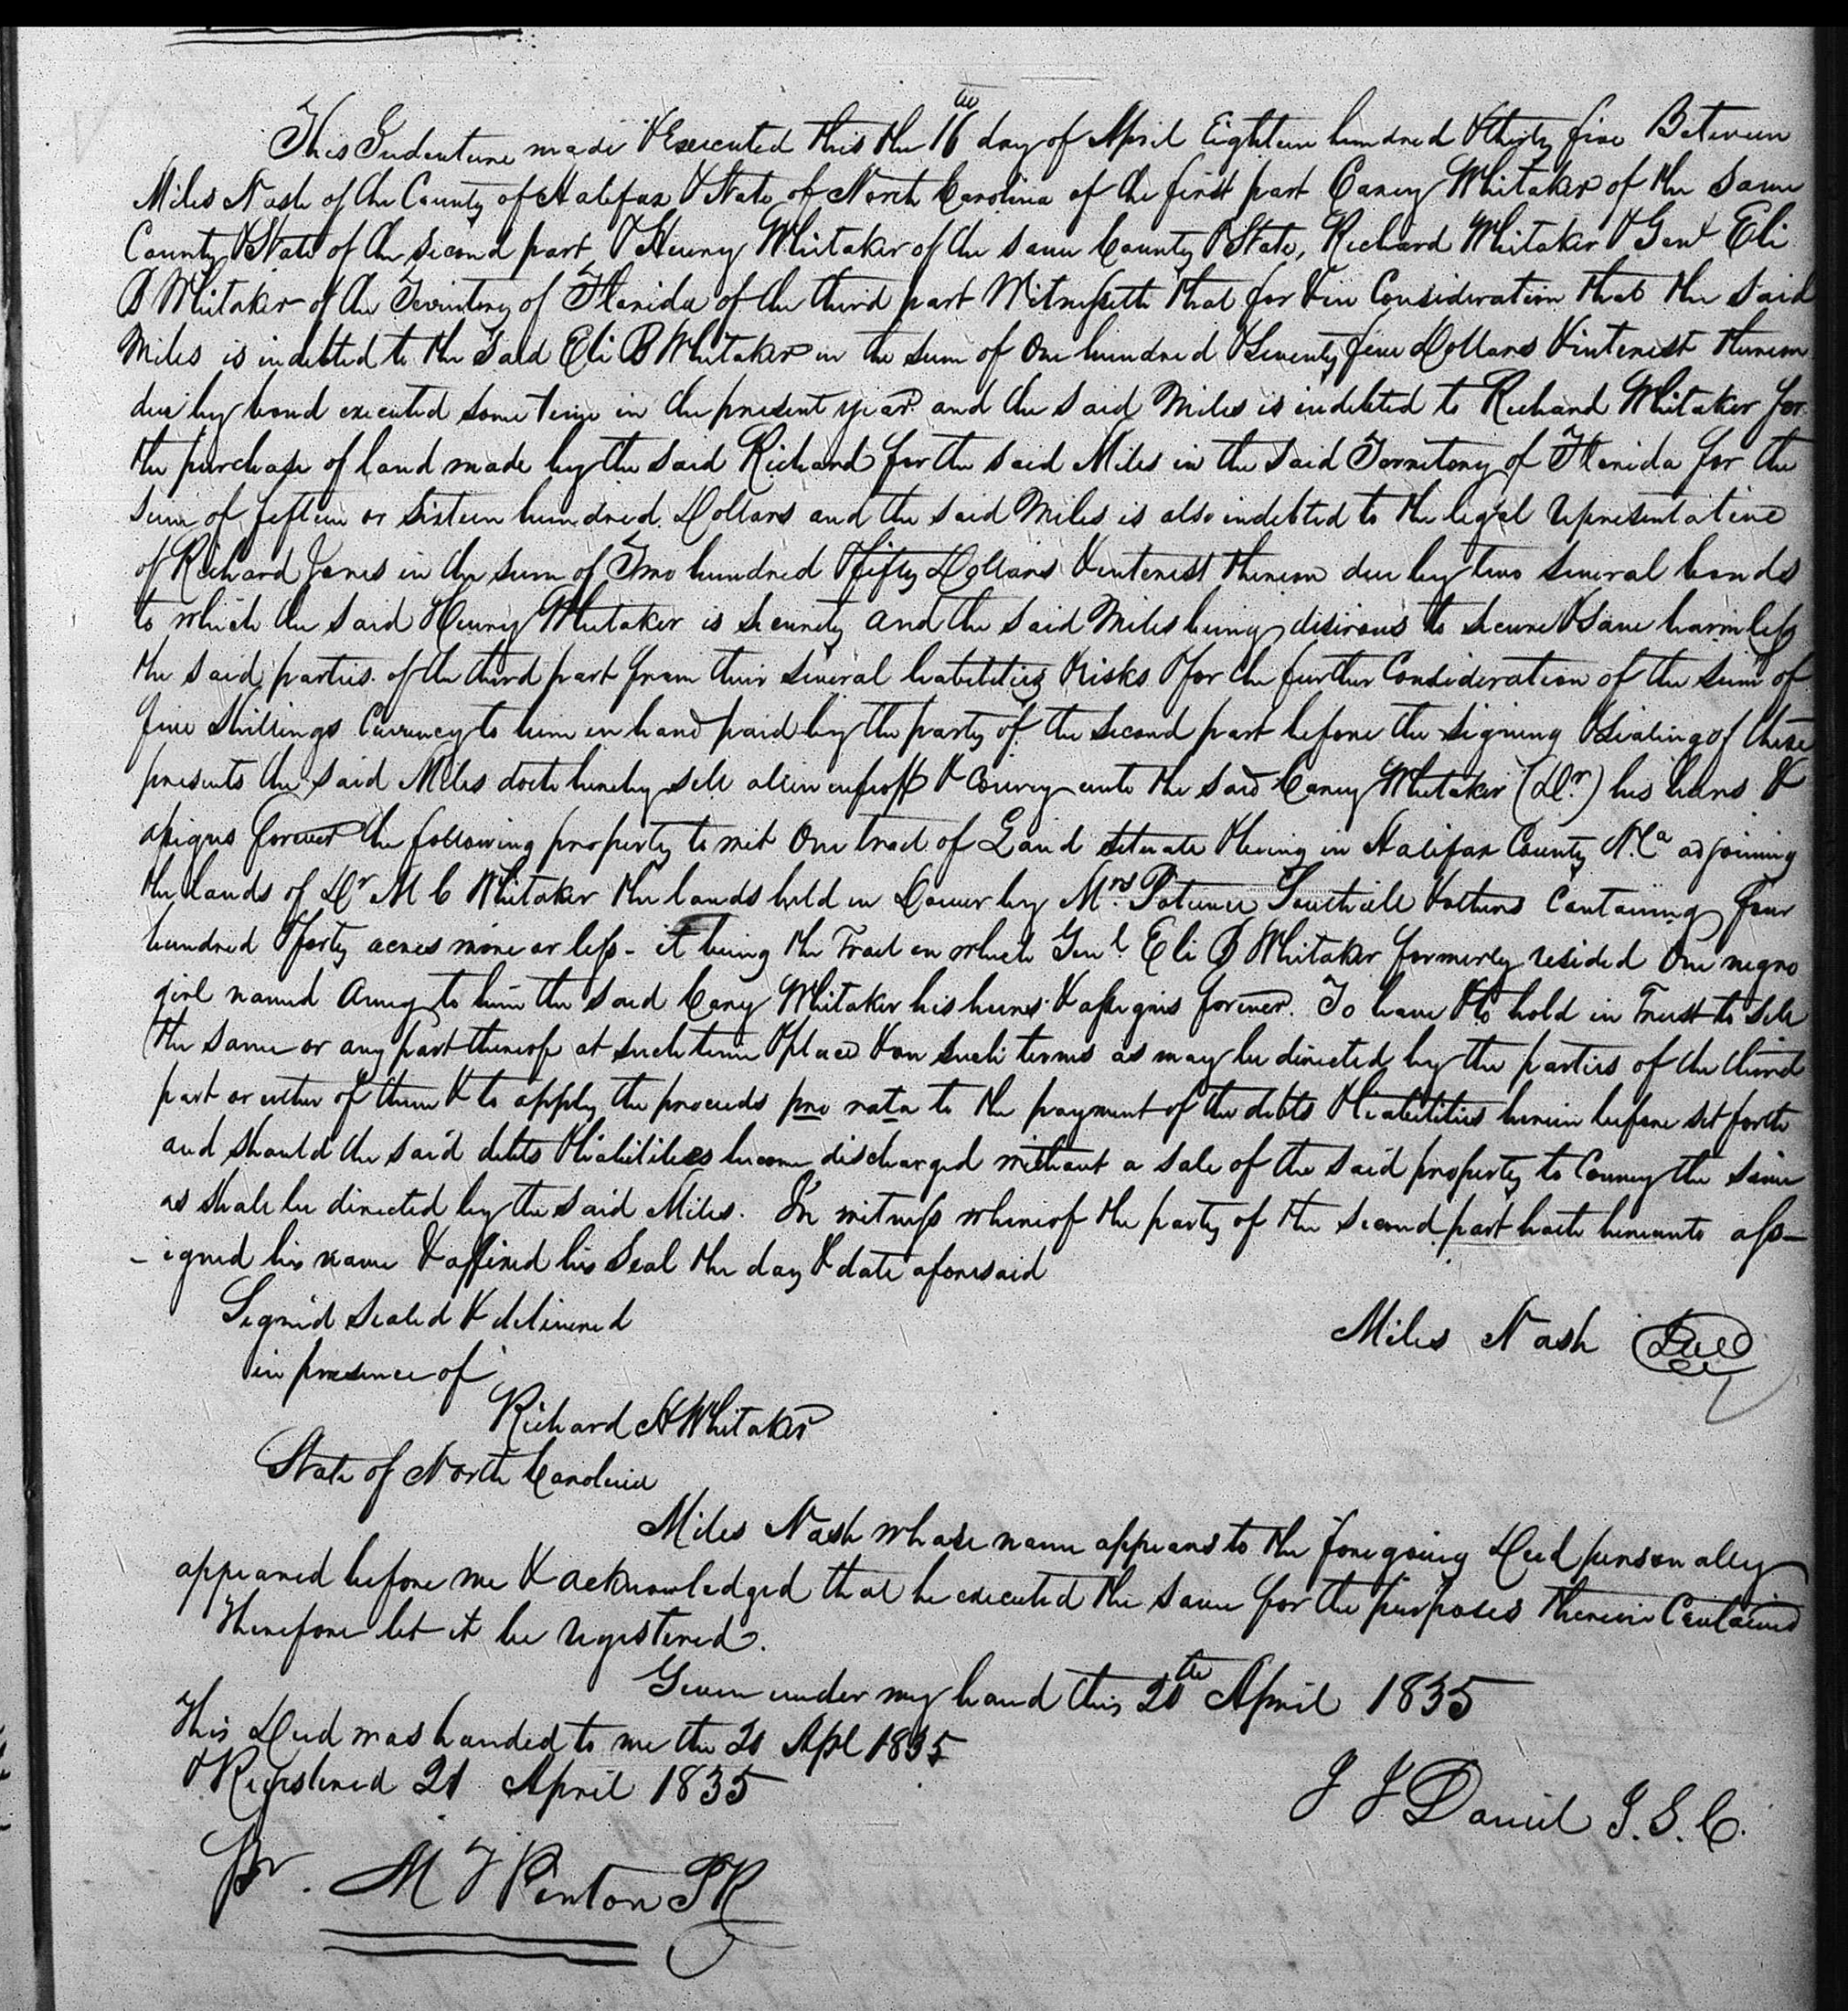 This Indenture made & Executed this the 16th day of April Eighteen hundred & thirty five Between
Miles Nash of the County of Halifax & State of North Carolina of the first part Carey Whitaker of the same
County & State of the second part, & Henry Whitaker of the same County & State, Richard Whitaker & Genl Eli
B Whitaker of the Teritory of Florida of the third part Witnesseth that for & in Consideration that the said
Miles is indebted to the said Eli B Whitaker in the sum of One hundred & Seventy five Dollars & interest thereon
due by bond executed some time in the present year and the said Miles is indebted to Richard Whitaker for
the purchase of land made by the said Richard for the said Miles in the said Territory of Florida for the
sum of fifteen or sixteen hundred Dollars and the said Miles is also indebted to the legal representative
of Richard Jones in the sum of Two hundred & fifty Dollars & interest thereon due by two several bonds
to which the said Henry Whitaker is security and the said Miles being desirous to secure & save harmless
the said parties of the third part from their several liabilities & risks & for the further Consideration of the sum of
five Shillings Currency to him in hand paid by the party of the second part before the signing & sealing of these
presents the said Miles doth hereby sell alien enfeoff & convey unto the said Carey Whitaker (Dr.) his heirs &
assigns forever the following property to wit One tract of Land situate & being in Halifax County N.Ca adjoining
the lands of Dr M C Whitaker the lands held in Dower by Mrs. Patience Southall & others Containing four
hundred & forty acres more or less - it being the Tract on which Genl Eli B Whitaker formerly resided One negro
girl named Amey to him the said Cary Whitaker his heirs & assigns forever. To have & to hold in Trust to sell
the same or any part thereof at such time & place & on such terms as may be directed by the parties of the third
part or either of them & to apply the proceeds pro rata to the payment of the debts & liabilities herein before set forth
and should the said debts & liabilities become discharged without a sale of the said property to Convey the same
as shall be directed by the said Miles. In witness whereof the party of the second part hath hereunto ass-
- igned his name & affixed his Seal the day & date aforesaid
Signed sealed & delivered
Miles Nash Seal
in presence of
Richard H Whitaker
State of North Carolina
Miles Nash whose name appears to the foregoing Deed personally
appeared before me & acknowledged that he executed the same for the purposes therein Contained
Therefore let it be registered.
Given under my hand this 20th April 1835
This Deed was handed to me the 20 Apl 1835
& Registered 21 April 1835
J J Daniel J.S.C.
Pr. M T Ponton PR